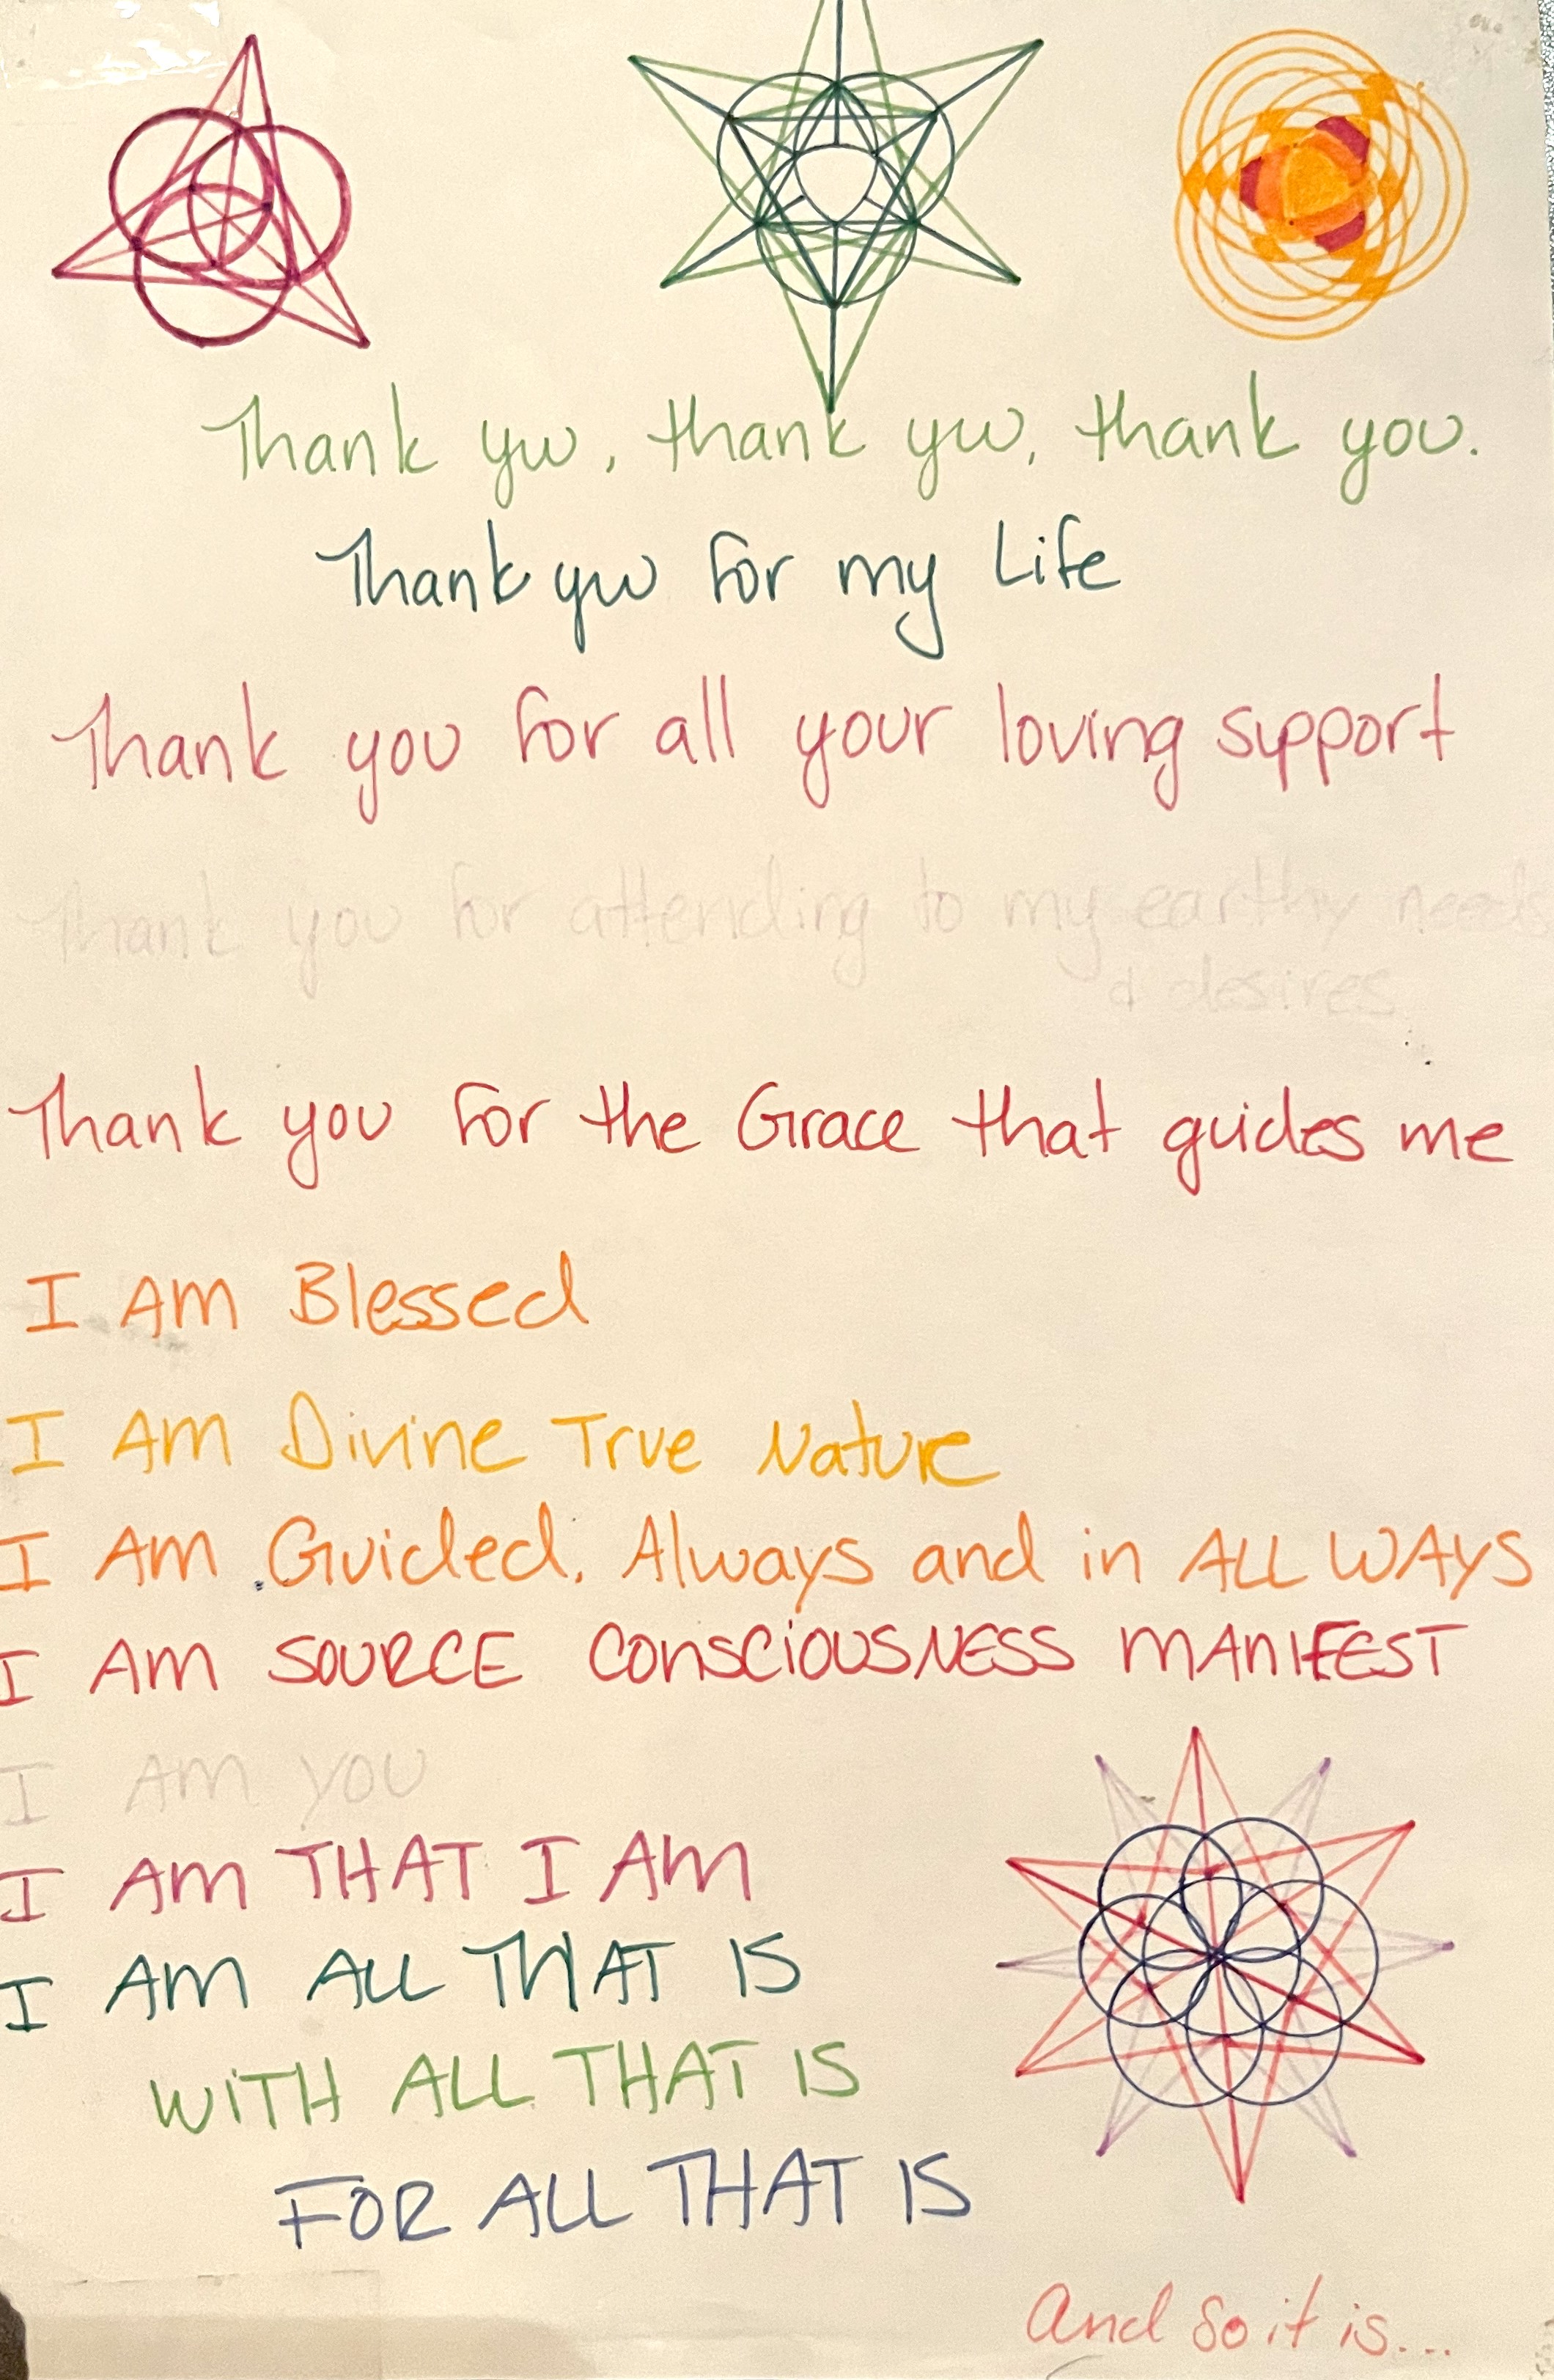 Thank you, thank you, thank you.
Thank you for my Life
Thank you for all your loving support
Thank you for attending to my earthy needs
& desires
Thank you for the Grace that guides me
I AM Blessed
I AM Divine True Nature
I AM Guided. Always and in ALL WAYS
I AM SOURCE CONSCIOUSNESS MANIFEST
I AM YOU
I AM THAT I AM
I AM ALL THAT IS
WITH ALL THAT IS
FOR ALL THAT IS
And so it is...